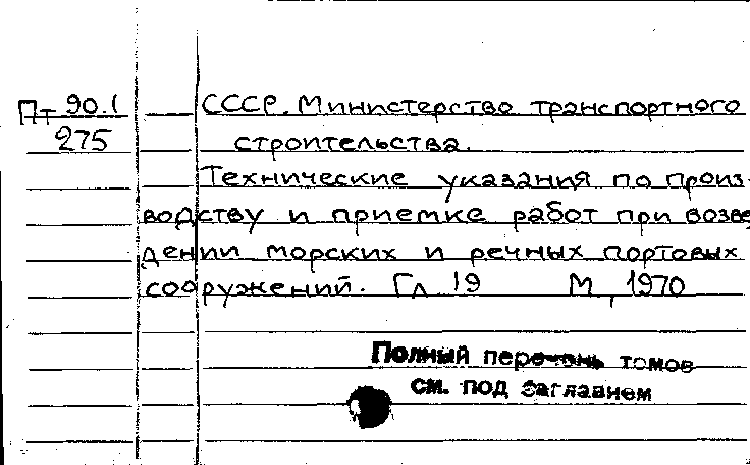 Пт 90.1 СССР. Министерство транспортного
275 строительства.
Технические указания по произ-
водству и приемке работ при возве
дении морских и речных портовых
сооружений. Гл 19 М, 1970
Полный перечень томов
см. под заглавием